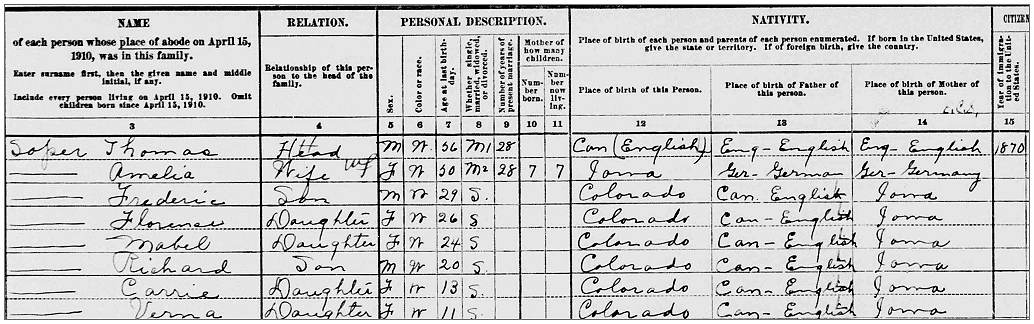 NAME RELATION. PERSONAL DESCRIPTION. NATIVITY. CITIZEN
of each person whose place of abode on April 15, 1910, was in this family.
Enter surname first, then the given name and middle initial, if any.
Include every person living on April 15, 1910. Omit children born since April 15, 1910.
Relationship of this person to the head of the family.
Sex.
Color or race.
Age at last birthday.
Whether single, married, widowed, or divorced.
Number of years of present marriage.
Mother of how many children.
Number born.
Number now living.
Place of birth of each person and parents of each person enumerated. If born in the United States, give the state or territory. If of foreign birth, give the country.
Place of birth of this Person.
Place of birth of Father of this person.
Place of birth of Mother of this person.
Year of immigration to the United States.
3 4 5 6 7 8 9 10 11 12 13 14 15
Soper Thomas Head M W 56 M1 28 Can (English) Eng - English Eng - English 1870
Amelia Wife F W 50 M2 28 7 7 Iowa Ger - German Ger - Germany
Frederic Son M W 29 S. Colorado Can. English Iowa
Florence Daughter F W 26 S Colorado Can - English Iowa
Mabel Daughter F W 24 S Colorado Can - English Iowa
Richard Son M W 20 S. Colorado Can - English Iowa
Carrie Daughter F W 13 S. Colorado Can - English Iowa
Verna Daughter F W 11 S. Colorado Can - English Iowa